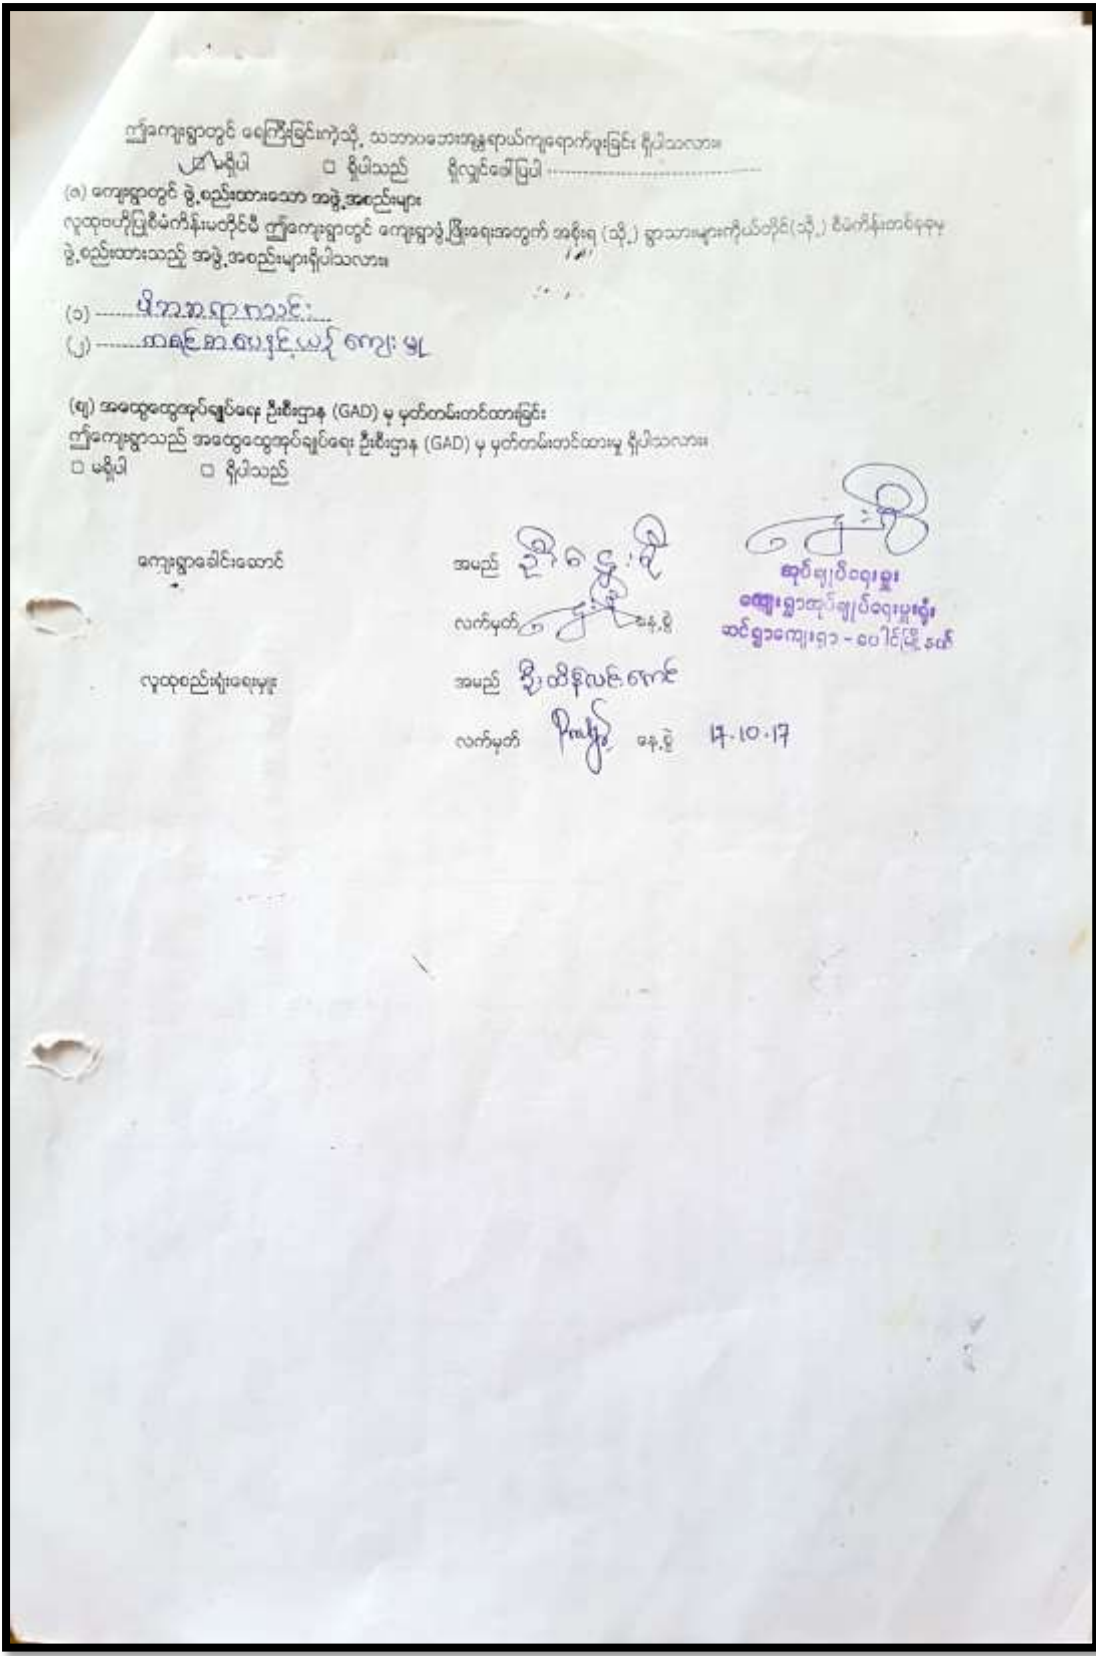 ဤကျေးရွာတွင် ရေကြီးခြင်းကဲ့သို့ သဘာဝဘေးအန္တရာယ်ကျရောက်ဖူးခြင်း ရှိပါသလား။
☑ မရှိပါ □ ရှိပါသည် ရှိလျှင်ဖော်ပြပါ ........................................
(ဇ) ကျေးရွာတွင် ဖွဲ့စည်းထားသော အဖွဲ့အစည်းများ
လူထုဗဟိုပြုစီမံကိန်းမတိုင်မီ ဤကျေးရွာတွင် ကျေးရွာဖွံ့ဖြိုးရေးအတွက် အစိုးရ (သို့) ရွာသားများကိုယ်တိုင်(သို့) စီမံကိန်းတစ်ခုခုမှ
ဖွဲ့စည်းထားသည့် အဖွဲ့အစည်းများရှိပါသလား။
(၁) ........ မိဘဆရာအသင်း
(၂) ........ စာပေနှင့်ယဉ်ကျေးမှု
(ဈ) အထွေထွေအုပ်ချုပ်ရေး ဦးစီးဌာန (GAD) မှ မှတ်တမ်းတင်ထားခြင်း
ဤကျေးရွာသည် အထွေထွေအုပ်ချုပ်ရေး ဦးစီးဌာန (GAD) မှ မှတ်တမ်းတင်ထားမှု ရှိပါသလား။
□ မရှိပါ □ ရှိပါသည်
ကျေးရွာခေါင်းဆောင် အမည်
လက်မှတ် နေ့စွဲ
အုပ်ချုပ်ရေးမှူး
ကျေးရွာအုပ်ချုပ်ရေးမှူးရုံး
ဆင်ရွာကျေးရွာ - ပေါင်မြို့နယ်
လူထုစည်းရုံးရေးမှူး အမည် ဦးထိန်လင်းအောင်
လက်မှတ် နေ့စွဲ 17.10.17